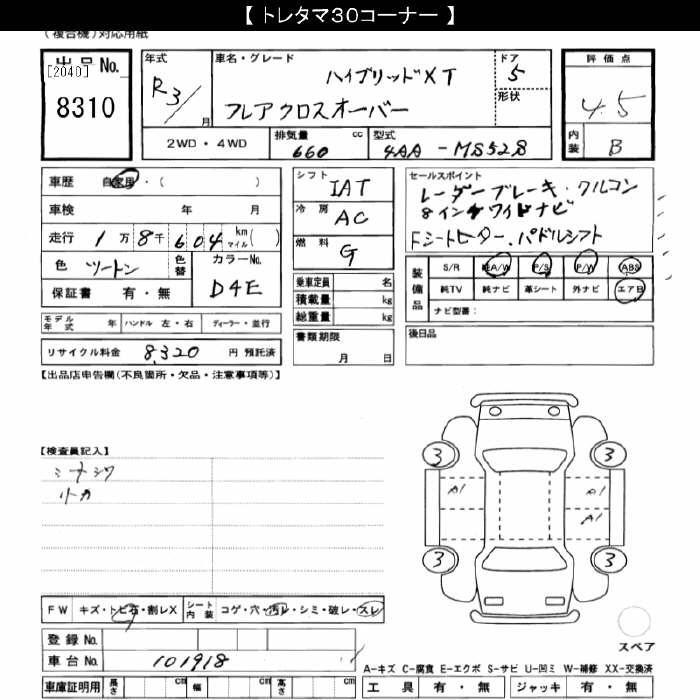 【 トレタマ30コーナー 】
(複合機)対応用紙
出品No.
[2040]
8310
年式
R3/
月
車名・グレード
ハイブリッドXT
フレアクロスオーバー
ドア
5
形状
評価点
4.5
内装
B
2WD・4WD
排気量
cc
660
型式
4AA-MS52S
車歴 自家用・( )
車検 年 月
走行 1万8千604 km マイル( )
色 ツートン
色替
カラーNo.
D4E
保証書 有・無
シフト
IAT
冷房
AC
燃料
G
乗車定員 名
積載量 kg
総重量 kg
書類期限
月 日
セールスポイント
レーダーブレーキ.クルコン
8インチワイドナビ
Fシートヒーター.パドルシフト
装備品
S/R 純A/W P/S P/W ABS
純TV 純ナビ 革シート 外ナビ エアB
ナビ型番:
後日品
モデル年式 年 ハンドル 左・右 ディーラー・並行
リサイクル料金 8,320 円 預託済
【出品店申告欄(不良箇所・欠品・注意事項等)】
【検査員記入】
3 3
A1 A1
A1
3 3
FW キズ・トビ石・割レX
シート内装 コゲ・穴・汚レ・シミ・破レ・スレ
登録No.
車台No. 101918
スペア
A-キズ C-腐食 E-エクボ S-サビ U-凹ミ W-補修 XX-交換済
車庫証明用 長さ cm 幅 cm 高さ cm
工具 有・無 ジャッキ 有・無